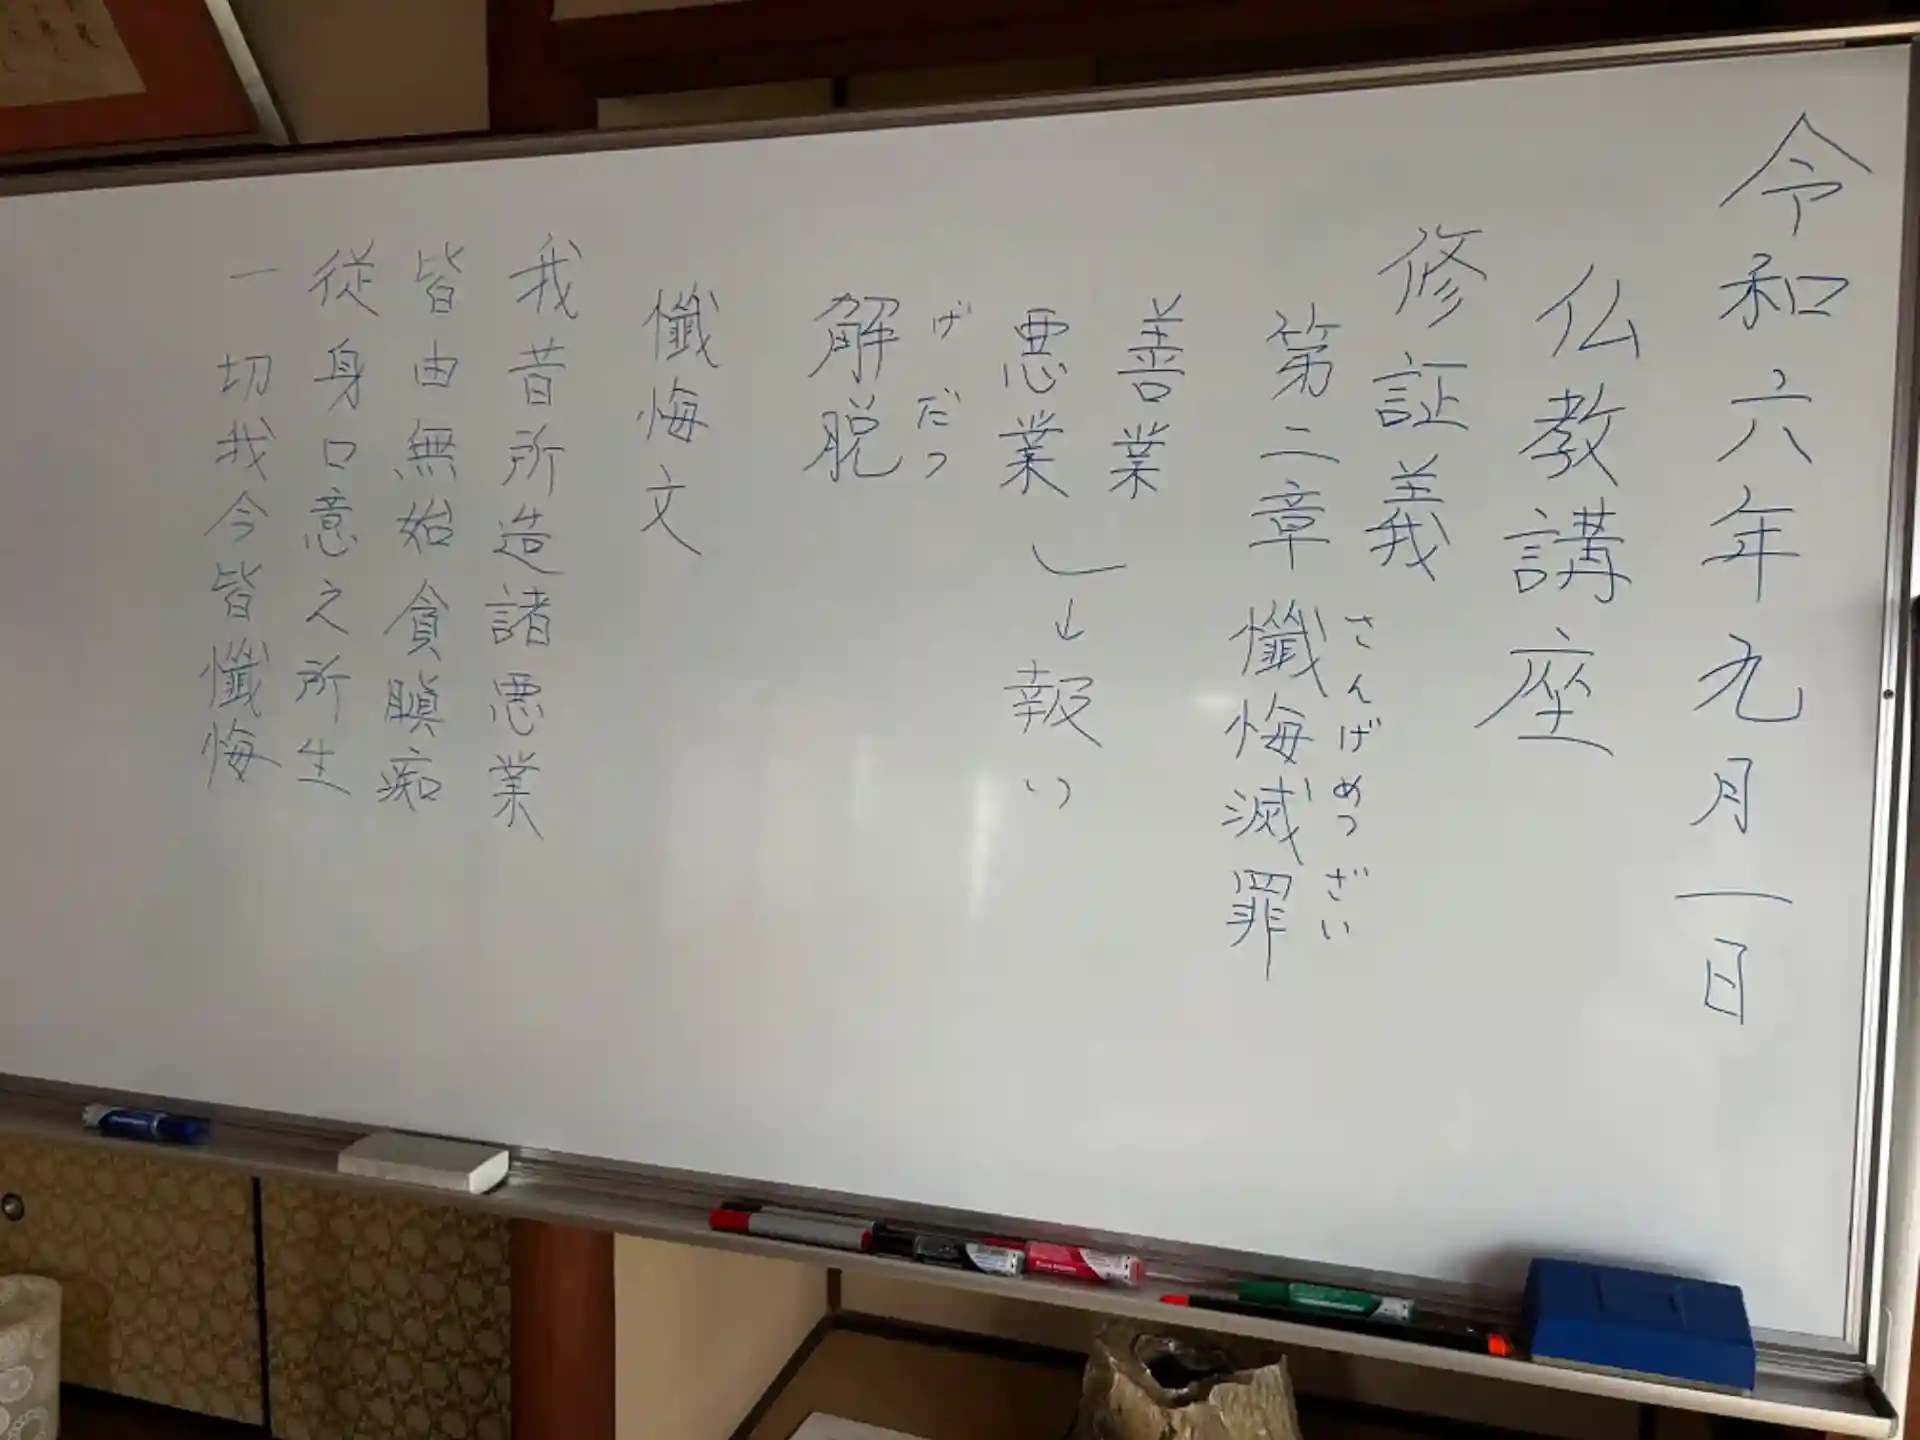 令和六年九月一日
仏教講座
修証義
第二章 懺悔滅罪
さんげめつざい
善業
悪業
↓
報い
げだつ
解脱
懺悔文
我昔所造諸悪業
皆由無始貪瞋痴
従身口意之所生
一切我今皆懺悔